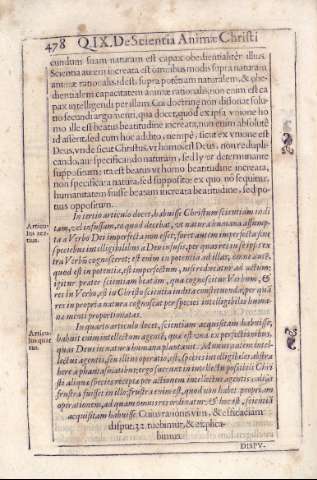 478 Q.IX. De Scientia Animæ Christi
cundum suam naturam est capax obedientialiter illius.
Scientia autem increata est omnibus modis supra naturam
animæ rationalis: idest supra potẽtiam naturalem, & obe-
dientialem capacitatem animæ rationalis: non enim est ca
pax intelligendi per illam. Cui doctrinæ non dissonat solu
tio secundi argumenti, qua docet, quod ex ipsa vnione ho
mo ille est beatus beatitudine increata, non enim absolutè
id asserit, sed cum hoc addito, nempè, sicut ex vnione est
Deus, vnde sicut Christus, vt homo, est Deus, non redupli-
cando, aut specificando naturam, sed ly vt determinante
suppositum: ita est beatus vt homo beatitudine increata,
non specificata natura, sed supposito: ex quo nõ sequitur,
humanitatem fuisse beatam increata beatitudine, sed po-
tius oppositum.
In tertio articulo docet, habuisse Christum scientiam indi
tam, vel infusam, ne quod decebat, vt natura humana assump
ta a Verbo Dei imperfecta non esset; fuerit autem imperfecta sine
speciebus intelligibilibus a Deo infusis, per quas res in seipsis ex
tra Verbũ cognosceret; est enim in potentia ad illas, omne autẽ,
quod est in potentia, est imperfectum, nisi reducatur ad actum:
igitur præter scientiam beatam, qua cognoscitur Verbum, &
res in Verbo, est in Christo scientia indita constituenda, per quã
res in propria natura cognoscat per species intelligibiles huma-
næ menti proportionatas.
In quarto articulo docet, scientiam acquisitam habuisse,
habuit enim intellectum agentẽ, qui est vna ex perfectionibus,
quas Deus in natura humana plantauit. Ad hunc autem intel-
lectũ agentẽ, sen illius operatio, est, species intelligibiles abstra
here a phantasmatibus; ergo fuerunt in intellectu possibili Chri
sti aliquæ species receptæ per actionem intellectus agentis, aliàs
frustra fuisset in illo; frustra enim est, quod non habet propriam
operationem, ad quam omnis res ordinatur; & hoc est, scientiã
acquisitam habuisse. Cuius rationis vim, & efficaciam
disput. 32. tuebimur, & explica-
bimus.
DISPV-
Articu-
lus ter-
tius.
Articu-
lus quar
tus.